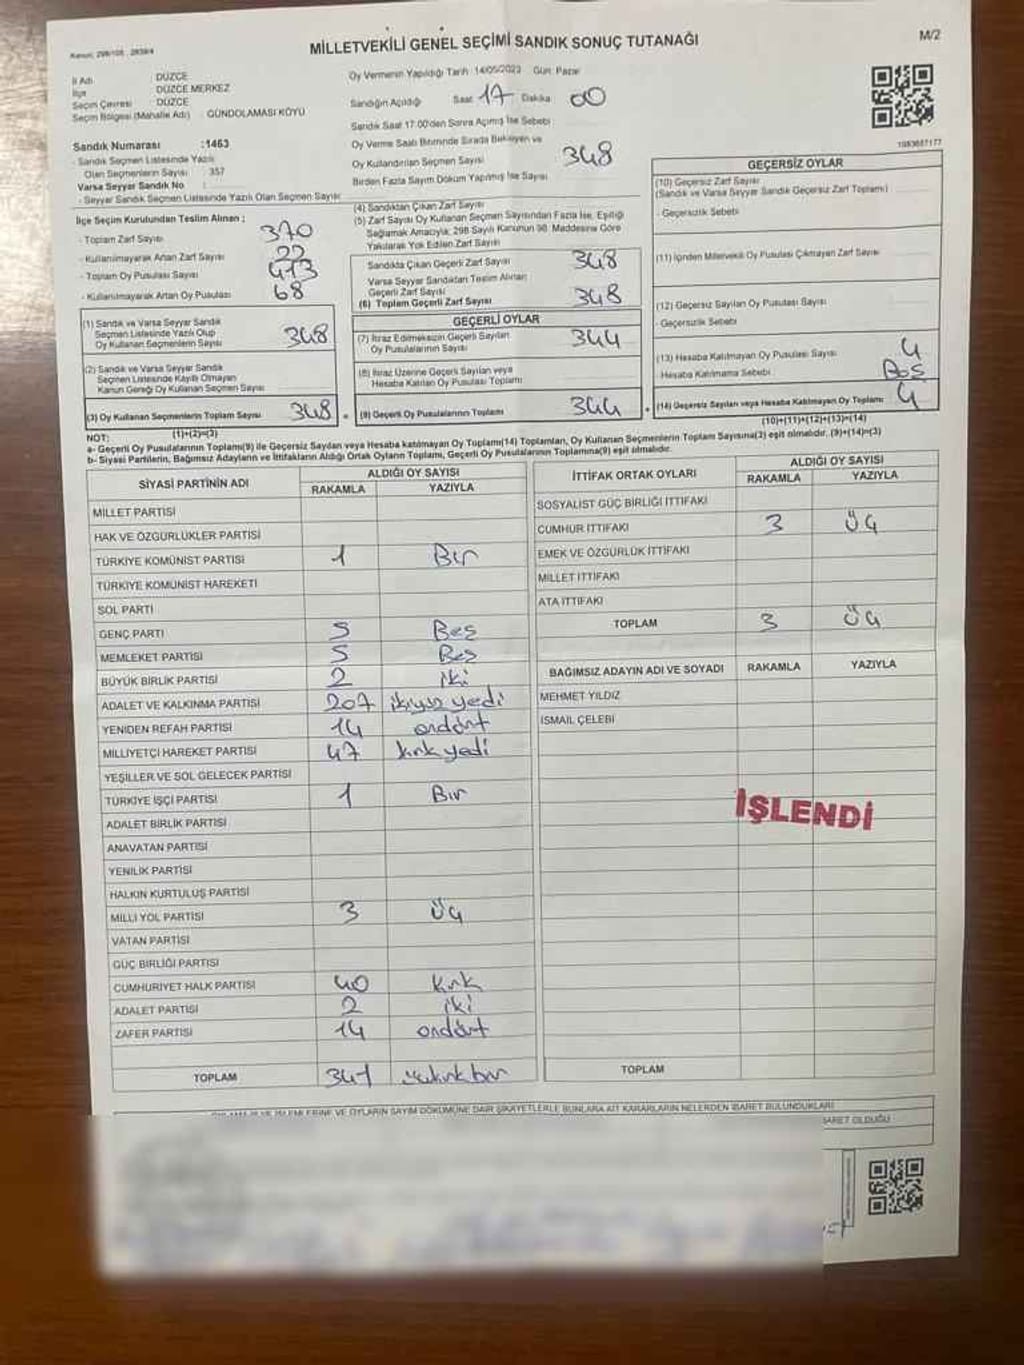 MİLLETVEKİLİ GENEL SEÇİMİ SANDIK SONUÇ TUTANAĞI
M/2
İl Adı : DÜZCE
İlçe : DÜZCE MERKEZ
Seçim Çevresi : DÜZCE
Seçim Bölgesi (Mahalle Adı) : GÜNDOLAMASI KÖYÜ
Oy Vermenin Yapıldığı Tarih : 14/05/2023 Gün: Pazar
Sandığın Açıldığı Saat 17 Dakika 00
Sandık Saat 17:00'den Sonra Açılmış İse Sebebi :
Oy Verme Saati Bitiminde Sırada Bekleyen ve
Oy Kullandırılan Seçmen Sayısı 348
Birden Fazla Sayım Döküm Yapılmış İse Sayısı
Sandık Numarası :1463
- Sandık Seçmen Listesinde Yazılı
Olan Seçmenlerin Sayısı : 357
Varsa Seyyar Sandık No :
- Seyyar Sandık Seçmen Listesinde Yazılı Olan Seçmen Sayısı
İlçe Seçim Kurulundan Teslim Alınan ;
- Toplam Zarf Sayısı 370
- Kullanılmayarak Artan Zarf Sayısı 22
- Toplam Oy Pusulası Sayısı 413
- Kullanılmayarak Artan Oy Pusulası 68
(1) Sandık ve Varsa Seyyar Sandık
Seçmen Listesinde Yazılı Olup
Oy Kullanan Seçmenlerin Sayısı 348
(2) Sandık ve Varsa Seyyar Sandık
Seçmen Listesinde Kayıtlı Olmayan
Kanun Gereği Oy Kullanan Seçmen Sayısı
(3) Oy Kullanan Seçmenlerin Toplam Sayısı 348
(1)+(2)=(3)
(4) Sandıktan Çıkan Zarf Sayısı
(5) Zarf Sayısı Oy Kullanan Seçmen Sayısından Fazla İse, Eşitliği
Sağlamak Amacıyla; 298 Sayılı Kanunun 98. Maddesine Göre
Yakılarak Yok Edilen Zarf Sayısı
Sandıkta Çıkan Geçerli Zarf Sayısı 348
Varsa Seyyar Sandıktan Teslim Alınan
Geçerli Zarf Sayısı
(6) Toplam Geçerli Zarf Sayısı 348
GEÇERLİ OYLAR
(7) İtiraz Edilmeksizin Geçerli Sayılan
Oy Pusulalarının Sayısı 344
(8) İtiraz Üzerine Geçerli Sayılan veya
Hesaba Katılan Oy Pusulası Toplamı
(9) Geçerli Oy Pusulalarının Toplamı 344
1083687177
GEÇERSİZ OYLAR
(10) Geçersiz Zarf Sayısı
(Sandık ve Varsa Seyyar Sandık Geçersiz Zarf Toplamı)
- Geçersizlik Sebebi
(11) İçinden Milletvekili Oy Pusulası Çıkmayan Zarf Sayısı
(12) Geçersiz Sayılan Oy Pusulası Sayısı
- Geçersizlik Sebebi
(13) Hesaba Katılmayan Oy Pusulası Sayısı 4
Hesaba Katılmama Sebebi Boş
(14) Geçersiz Sayılan veya Hesaba Katılmayan Oy Toplamı 4
(10)+(11)+(12)+(13)=(14)
NOT:
a- Geçerli Oy Pusulalarının Toplamı(9) ile Geçersiz Sayılan veya Hesaba katılmayan Oy Toplamı(14) Toplamları, Oy Kullanan Seçmenlerin Toplam Sayısına(3) eşit olmalıdır. (9)+(14)=(3)
b- Siyasi Partilerin, Bağımsız Adayların ve İttifakların Aldığı Ortak Oyların Toplamı, Geçerli Oy Pusulalarının Toplamına(9) eşit olmalıdır.
SİYASİ PARTİNİN ADI ALDIĞI OY SAYISI
RAKAMLA YAZIYLA
MİLLET PARTİSİ
HAK VE ÖZGÜRLÜKLER PARTİSİ
TÜRKİYE KOMÜNİST PARTİSİ 1 Bir
TÜRKİYE KOMÜNİST HAREKETİ
SOL PARTİ
GENÇ PARTİ 5 Beş
MEMLEKET PARTİSİ 5 Beş
BÜYÜK BİRLİK PARTİSİ 2 iki
ADALET VE KALKINMA PARTİSİ 207 ikiyüz yedi
YENİDEN REFAH PARTİSİ 14 ondört
MİLLİYETÇİ HAREKET PARTİSİ 47 kırk yedi
YEŞİLLER VE SOL GELECEK PARTİSİ
TÜRKİYE İŞÇİ PARTİSİ 1 Bir
ADALET BİRLİK PARTİSİ
ANAVATAN PARTİSİ
YENİLİK PARTİSİ
HALKIN KURTULUŞ PARTİSİ
MİLLİ YOL PARTİSİ 3 Üç
VATAN PARTİSİ
GÜÇ BİRLİĞİ PARTİSİ
CUMHURİYET HALK PARTİSİ 40 Kırk
ADALET PARTİSİ 2 iki
ZAFER PARTİSİ 14 ondört
TOPLAM 341
İTTİFAK ORTAK OYLARI ALDIĞI OY SAYISI
RAKAMLA YAZIYLA
SOSYALİST GÜÇ BİRLİĞİ İTTİFAKI
CUMHUR İTTİFAKI 3 Üç
EMEK VE ÖZGÜRLÜK İTTİFAKI
MİLLET İTTİFAKI
ATA İTTİFAKI
TOPLAM 3 Üç
BAĞIMSIZ ADAYIN ADI VE SOYADI RAKAMLA YAZIYLA
MEHMET YILDIZ
İSMAİL ÇELEBİ
İŞLENDİ
TOPLAM
VE OYLARIN SAYIM DÖKÜMÜNE DAİR ŞİKAYETLERLE BUNLARA AİT KARARLARIN NELERDEN İBARET BULUNDUKLARI
OLDUĞU